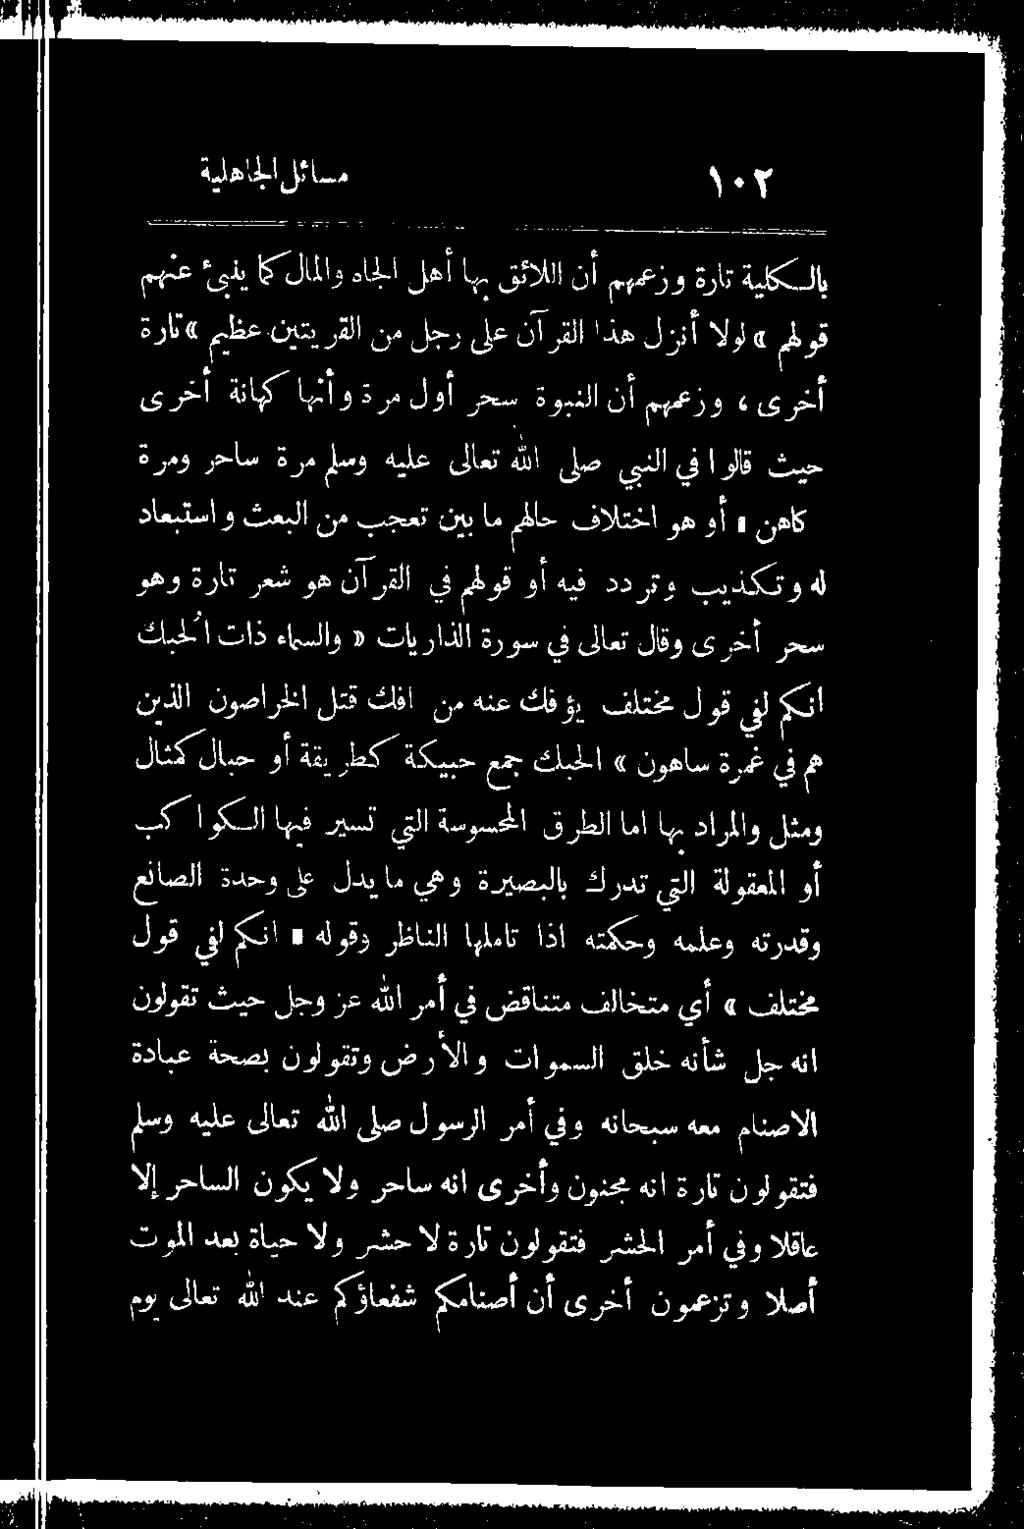 ١٠٢ مسائل الجاهلية
بالكلية تارة وزعمهم أن اللائق بها أهل الجاه والمال كما ينبئ عنهم
قولهم « لولا أنزل هذا القرآن على رجل من القريتين عظيم » تارة
أخرى ، وزعمهم أن النبوة سحر أول مرة وأنها كهانة أخرى
حيث قالوا في النبي صلى الله تعالى عليه وسلم مرة ساحر ومرة
كاهن ، أو هو اختلاف حالهم ما بين تعجب من البعث واستبعاد
له وتكذيب وتردد فيه أو قولهم في القرآن هو شعر تارة وهو
سحر أخرى وقال تعالى في سورة الذاريات « والسماء ذات الحُبك
انكم لفي قول مختلف يؤفك عنه من افك قتل الخراصون الذين
هم في غمرة ساهون » الحبك جمع حبيكة كطريقة أو حبال كمثال
ومثل والمراد بها اما الطرق المحسوسة التي تسير فيها الكواكب
أو المعقولة التي تدرك بالبصيرة وهي ما يدل على وحدة الصانع
وقدرته وعلمه وحكمته اذا تاملها الناظر وقوله « انكم لفي قول
مختلف » أي متخالف متناقض في أمر الله عز وجل حيث تقولون
انه جل شأنه خلق السموات والأرض وتقولون بصحة عبادة
الاصنام معه سبحانه وفي أمر الرسول صلى الله تعالى عليه وسلم
فتقولون تارة انه مجنون وأخرى انه ساحر ولا يكون الساحر إلا
عاقلا وفي أمر الحشر فتقولون تارة لا حشر ولا حياة بعد الموت
أصلا وتزعمون أخرى أن أصنامكم شفعاؤكم عند الله تعالى يوم